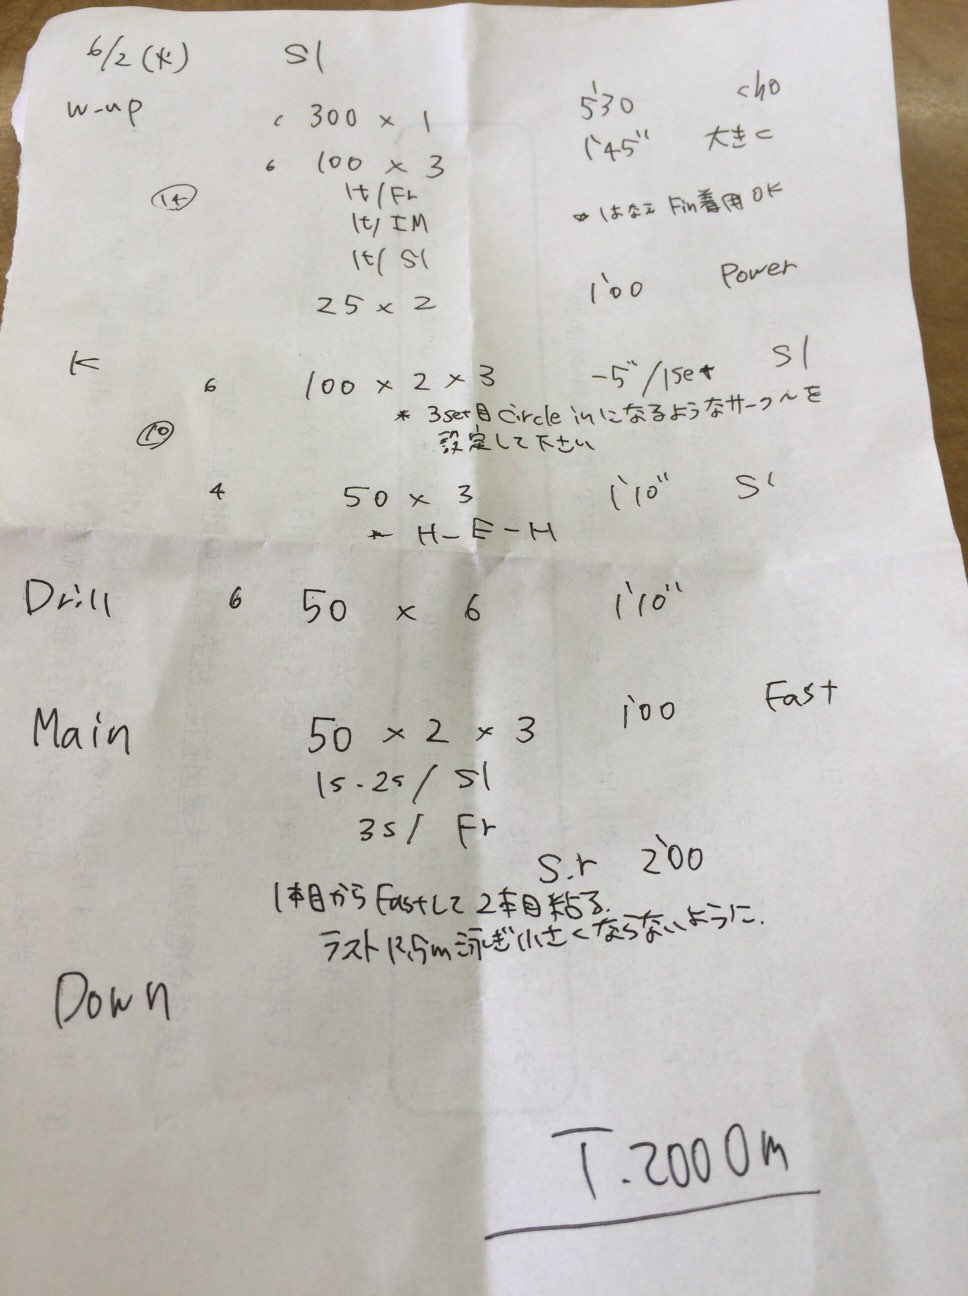 6/2 (水) S1
W-up 6 300 × 1 5'30 cho
6 100 × 3 1'45" 大きく
1t/Fr
1t/IM
1t/S1
* はなえ Fin着用 OK
25 × 2 1'00 Power
K 6 100 × 2 × 3 -5"/1set S1
* 3set目 Circle inになるようなサークルを
設定して下さい
10
4 50 × 3 1'10" S1
* H-E-H
Drill 6 50 × 6 1'10"
Main 50 × 2 × 3 1'00 Fast
1s.2s/ S1
3s/ Fr
S.r 2'00
1本目からFastして2本目粘る.
ラスト12.5m泳ぎ小さくならないように.
Down
T.2000m